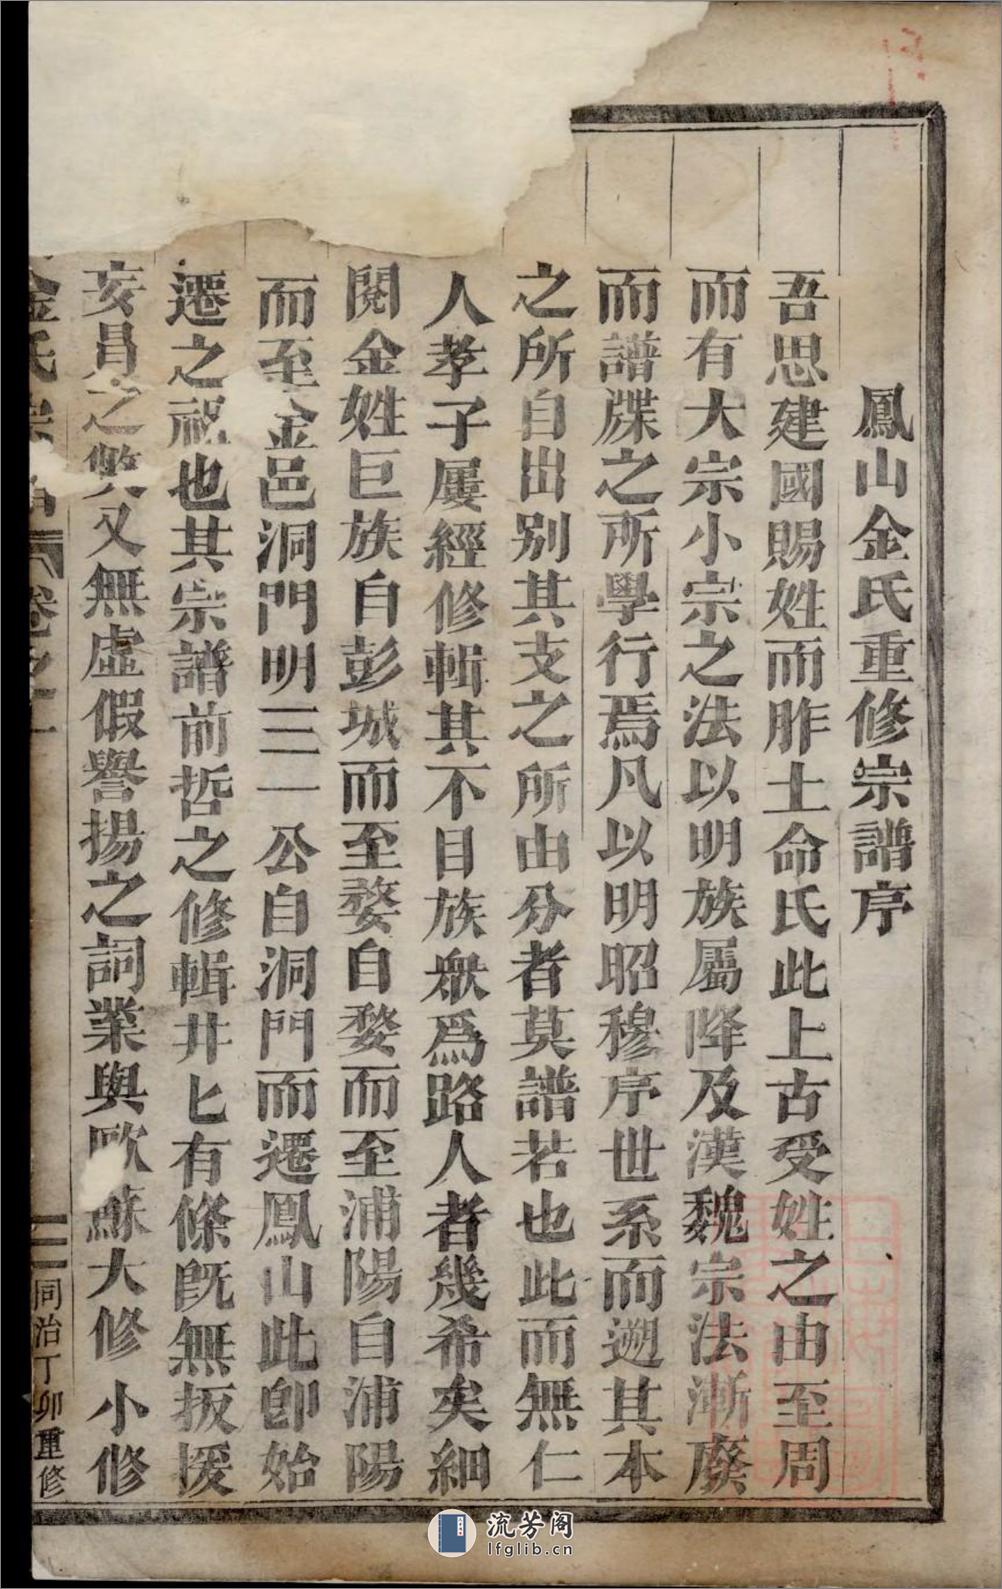 鳳山金氏重修宗譜序
吾思建國賜姓而胙土命氏此上古受姓之由至周
而有大宗小宗之法以明族屬降及漢魏宗法漸廢
而譜牒之所學行焉凡以明昭穆序世系而遡其本
之所自出别其支之所由分者莫譜若也此而無仁
人孝子屢經修輯其不目族衆爲路人者幾希矣細
閱金姓巨族自彭城而至婺自婺而至浦陽自浦陽
而至金邑洞門明三一公自洞門而遷鳳山此卽始
遷之祖也其宗譜前哲之修輯井匕有條旣無扳援
妄冒之獘又無虛假譽揚之詞業與歐蘇大修小修
金氏宗譜 卷之一 同治丁卯重修
流芳阁
lfglib.cn